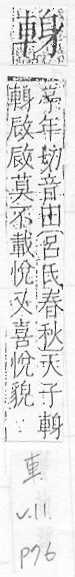 年切音田[呂氏春秋]天子
啟啟莫不載悅又喜悅貌
車
v.11.
p76